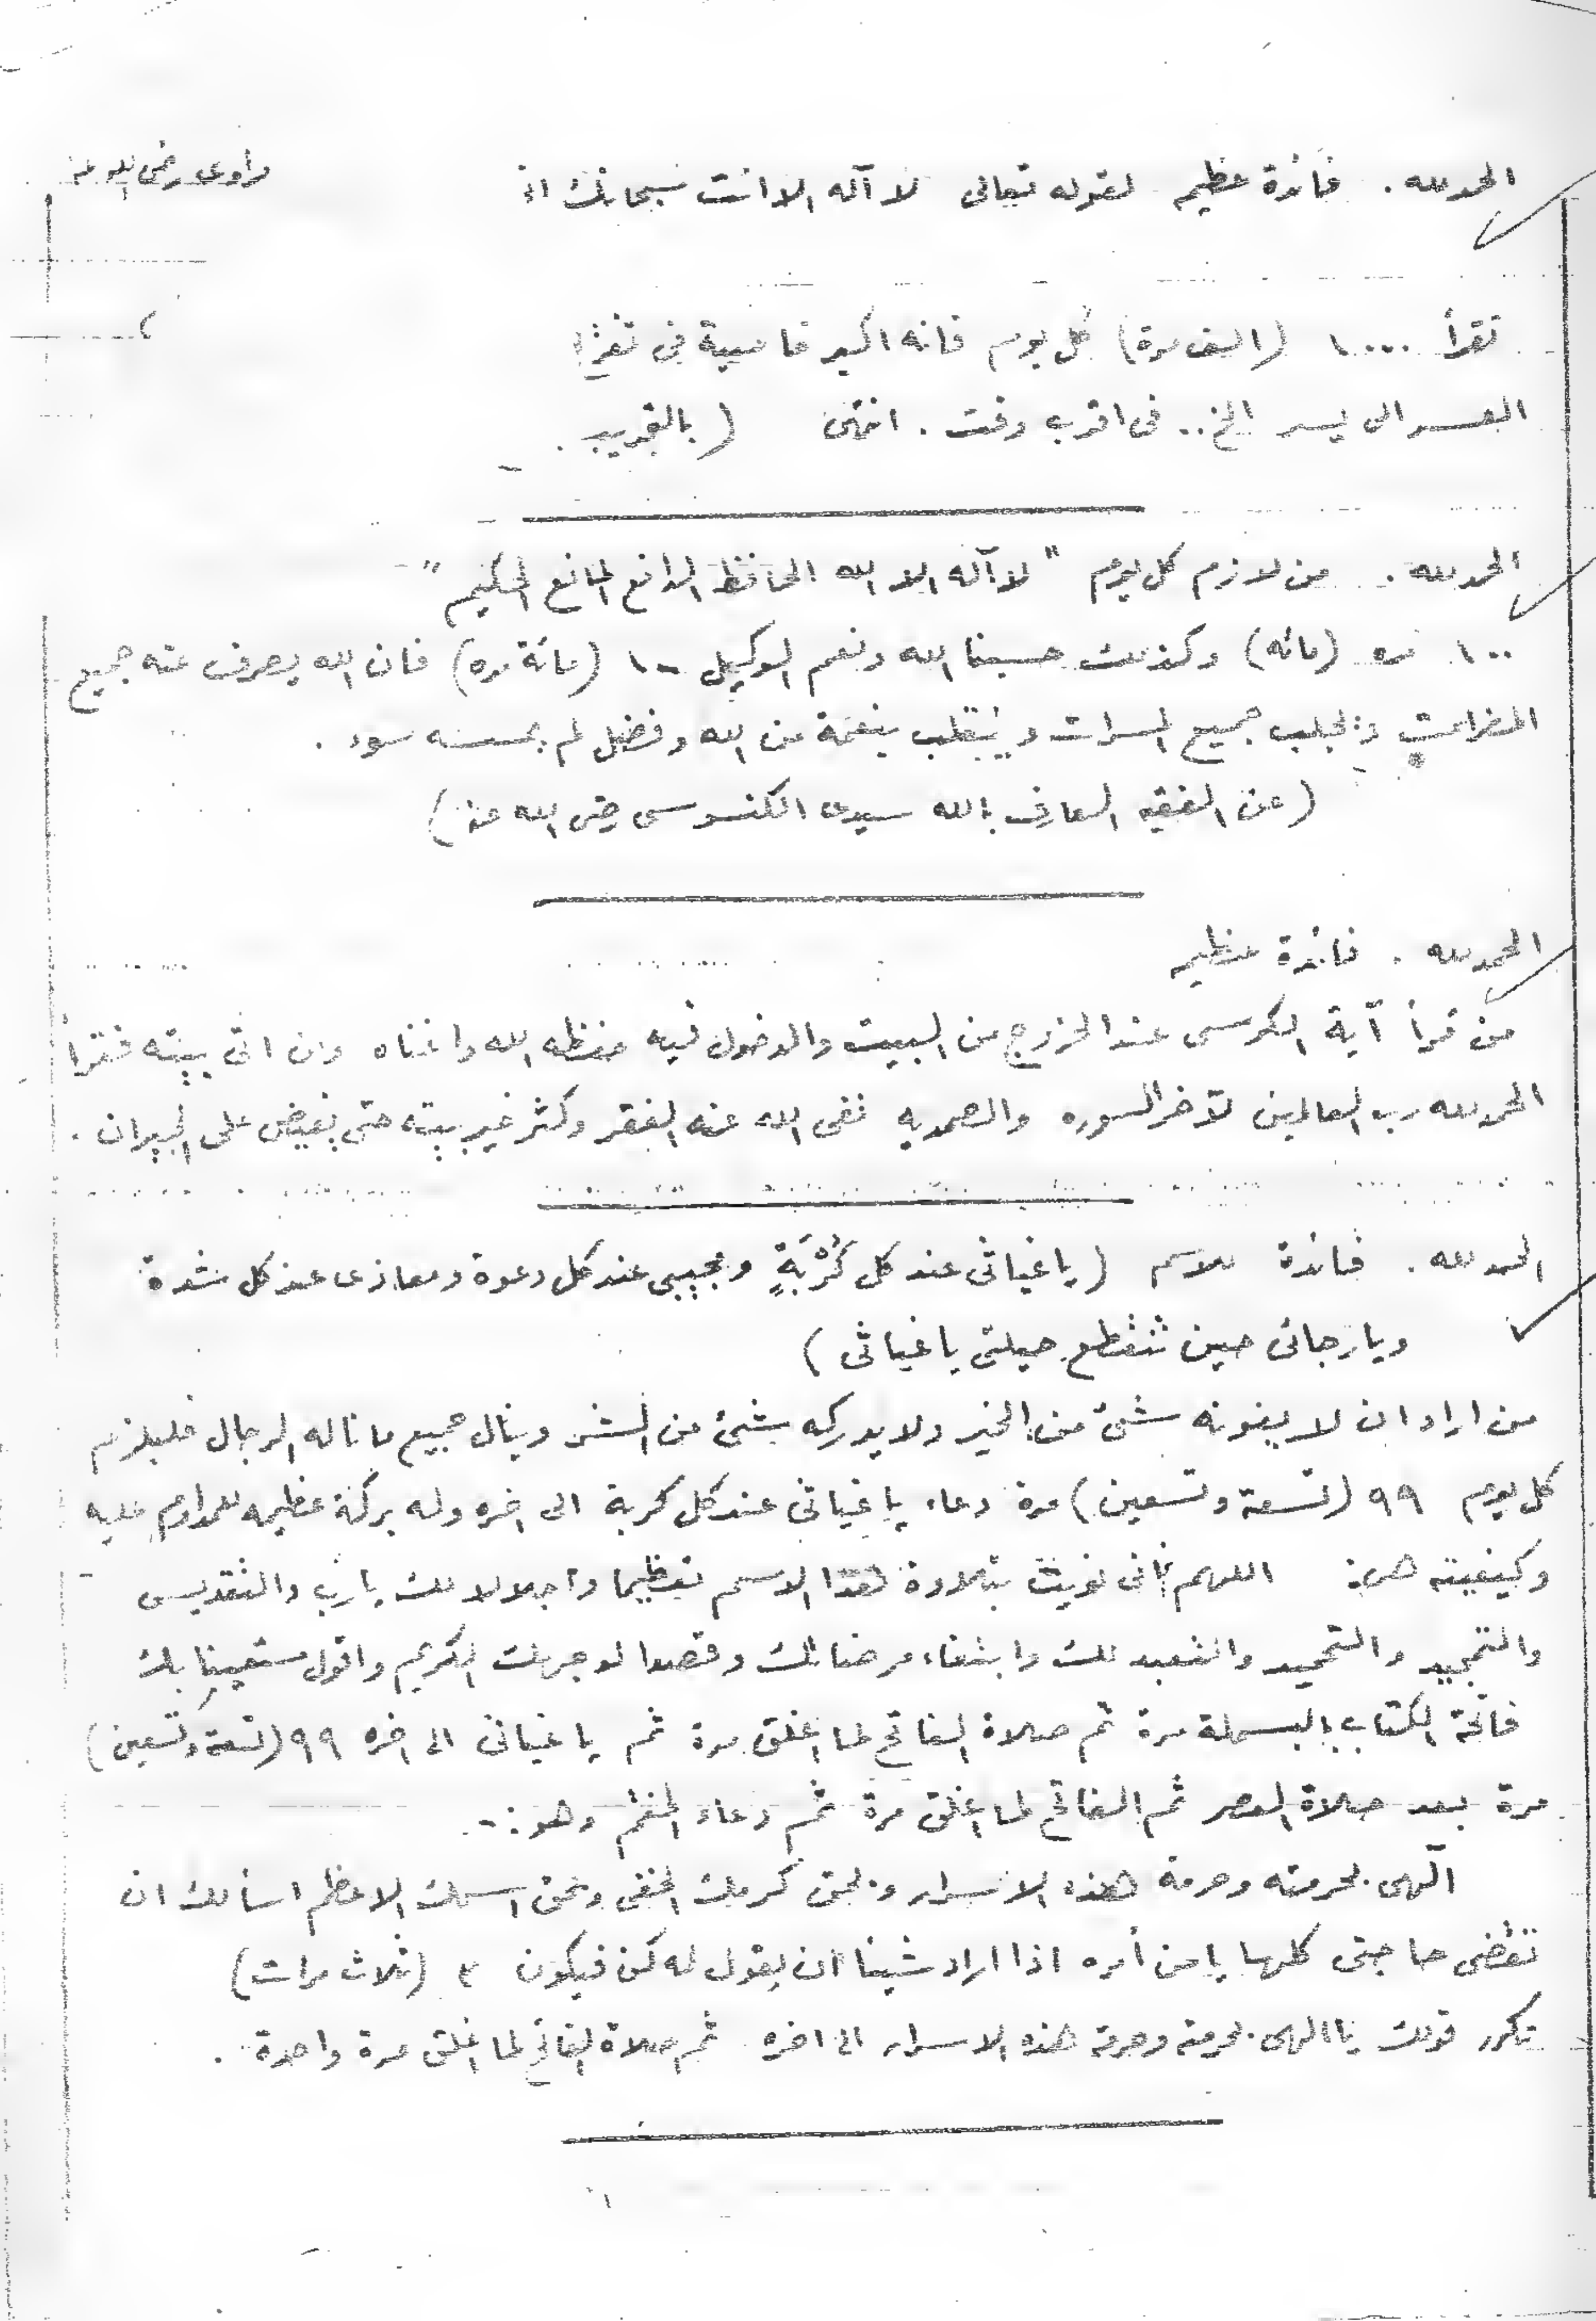 الحمد لله . فائدة عظيمه لقوله تعالى لا آله الا انت سبحانك اني
رضى الله عنه
تقرأ ١٠٠٠ (الف مرة) كل يوم فانه اكبر خاصية فى
العسر الى يسر الخ .. فى اقرب وقت . انتهى (بالتجريب .
الحمد لله . من لازم كل يوم " لا آله الا الله الحافظ الدافع المانع الحكيم "
١٠٠ مره (مائه) وكذلك حسبنا الله ونعم الوكيل ١٠٠ (مائة مره) فان الله يصرف عنه جميع
المضرات ويجلب جميع المسرات وينقلب بنعمة من الله وفضل لم يمسسه سوء .
(عن الفقيه العارف بالله سيدى الكنسوسى رضى الله عنه)
الحمد لله . فائدة عظيمه
من قرأ آية الكرسى عند الخروج من البيت والدخول فيه حفظه الله واغناه وان اتى بيته فقرأ
الحمد لله رب العالمين لآخر السوره والصمديه نفى الله عنه الفقر وكثر خير بيته حتى يفيض على الجيران .
الحمد لله . فائدة للاسم (يا غياثى عند كل كُرْبَةٍ ومجيبى عند كل دعوة ومعاذى عند كل شدة
ويا رجائى حين تنقطع حيلتى يا غياثى)
من اراد ان لا يفوته شئ من الخير ولا يدركه شئ من الشر وينال جميع ما ناله الرجال فليلزم
كل يوم ٩٩ (تسعة وتسعين) مرة دعاء يا غياثى عند كل كربة الى اخره وله بركة عظيمه للمداوم عليه
وكيفيته هى : اللهم انى نويت بتلاوة هذا الاسم تعظيما واجلالا لك يا رب والتقديس
والتمجيد والتحميد والتعبد لك وابتغاء مرضاتك وقصدا لوجهك الكريم واقول مستعينا بك
فاتحة الكتاب بالبسملة مرة ثم صلاة الفاتح لما اغلق مرة ثم يا غياثى الى اخره ٩٩ (تسعة وتسعين)
مرة بعد صلاة العصر ثم الفاتح لما اغلق مرة ثم دعاء الختم وهو :-
آلهى بحرمته وحرمة هذه الاسرار وبحق كرمك الخفى وبحق اسمك الاعظم اسألك ان
تقضى حاجتى كلها يا من أمره اذا اراد شيئا ان يقول له كن فيكون ٣ (ثلاث مرات)
تكرر قولك يا الهى بحرمته وحرمة هذه الاسرار الى اخره ثم صلاة الفاتح لما اغلق مرة واحدة .